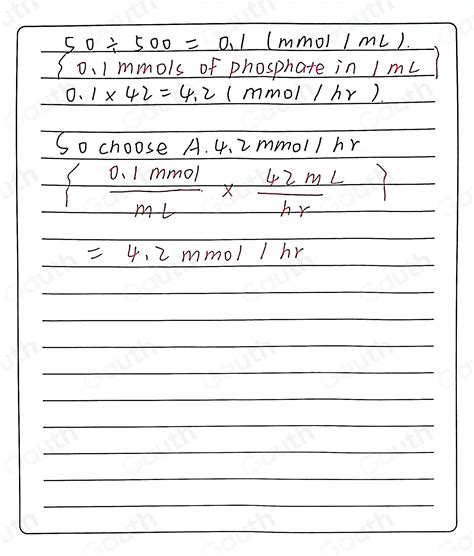 50 ÷ 500 = 0.1 (mmol / mL).
{ 0.1 mmols of phosphate in 1 mL }
0.1 × 42 = 4.2 ( mmol / hr ).
So choose A. 4.2 mmol / hr
{ 0.1 mmol / mL × 42 mL / hr }
= 4.2 mmol / hr
Gauth